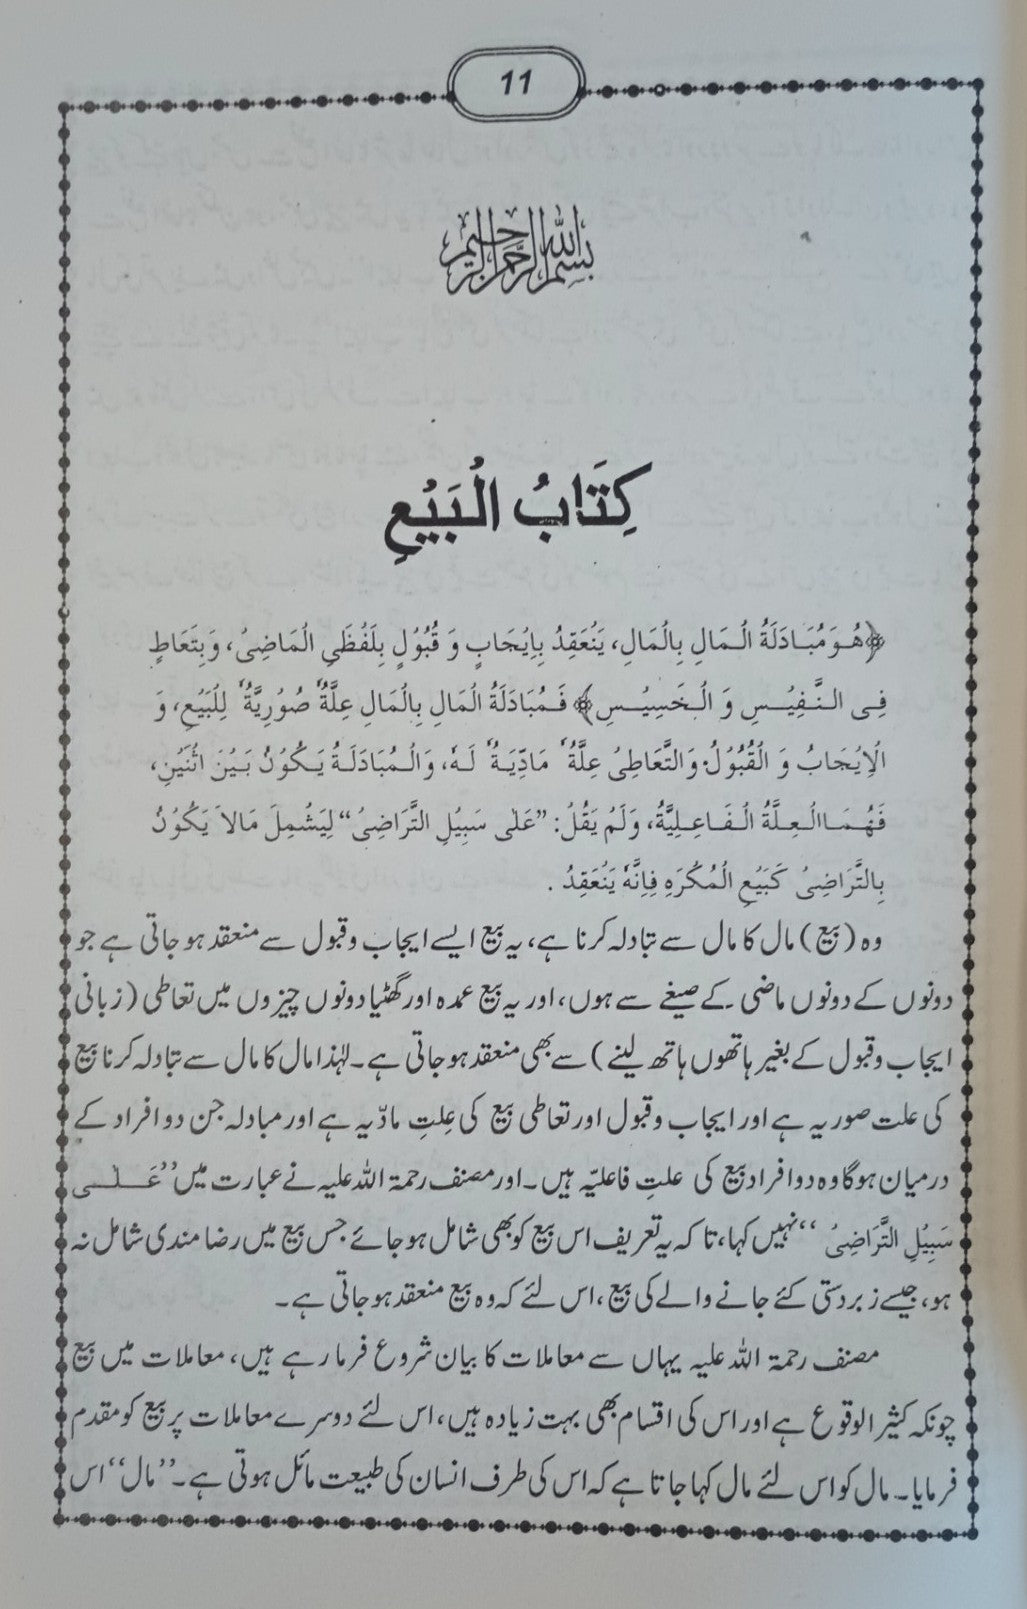 11
بسم الله الرحمن الرحيم
كِتَابُ الْبَيْعِ
﴿هُوَ مُبَادَلَةُ الْمَالِ بِالْمَالِ، يَنْعَقِدُ بِإِيْجَابٍ وَ قُبُوْلٍ بِلَفْظَيِ الْمَاضِيْ، وَبِتَعَاطٍ
فِي النَّفِيْسِ وَ الْخَسِيْسِ﴾ فَمُبَادَلَةُ الْمَالِ بِالْمَالِ عِلَّةٌ صُوْرِيَّةٌ لِلْبَيْعِ، وَ
الْإِيْجَابُ وَ الْقُبُوْلُ وَالتَّعَاطِيْ عِلَّةٌ مَادِّيَةٌ لَهٗ، وَالْمُبَادَلَةُ يَكُوْنُ بَيْنَ اثْنَيْنِ،
فَهُمَا الْعِلَّةُ الْفَاعِلِيَّةُ، وَلَمْ يَقُلْ: ”عَلٰى سَبِيْلِ التَّرَاضِيْ“ لِيَشْمِلَ مَالاَ يَكُوْنُ
بِالتَّرَاضِيْ كَبَيْعِ الْمُكْرَهِ فَإِنَّهٗ يَنْعَقِدُ .
وہ (بیع) مال کا مال سے تبادلہ کرنا ہے، یہ بیع ایسے ایجاب وقبول سے منعقد ہو جاتی ہے جو
دونوں کے دونوں ماضی کے صیغے سے ہوں، اور یہ بیع عمدہ اور گھٹیا دونوں چیزوں میں تعاطی (زبانی
ایجاب وقبول کے بغیر ہاتھوں ہاتھ لینے) سے بھی منعقد ہو جاتی ہے۔ لہٰذا مال کا مال سے تبادلہ کرنا بیع
کی علت صوریہ ہے اور ایجاب وقبول اور تعاطی بیع کی علتِ مادّیہ ہے اور مبادلہ جن دو افراد کے
درمیان ہوگا وہ دو افراد بیع کی علتِ فاعلیّہ ہیں۔ اور مصنف رحمۃ اللہ علیہ نے عبارت میں ”عَلٰی
سَبِيْلِ التَّرَاضِيْ“ نہیں کہا، تا کہ یہ تعریف اس بیع کو بھی شامل ہو جائے جس بیع میں رضا مندی شامل نہ
ہو، جیسے زبردستی کئے جانے والے کی بیع، اس لئے کہ وہ بیع منعقد ہو جاتی ہے۔
مصنف رحمۃ اللہ علیہ یہاں سے معاملات کا بیان شروع فرما رہے ہیں، معاملات میں بیع
چونکہ کثیر الوقوع ہے اور اس کی اقسام بھی بہت زیادہ ہیں، اس لئے دوسرے معاملات پر بیع کو مقدم
فرمایا۔ مال کو اس لئے مال کہا جاتا ہے کہ اس کی طرف انسان کی طبیعت مائل ہوتی ہے۔ ”مال“ اس